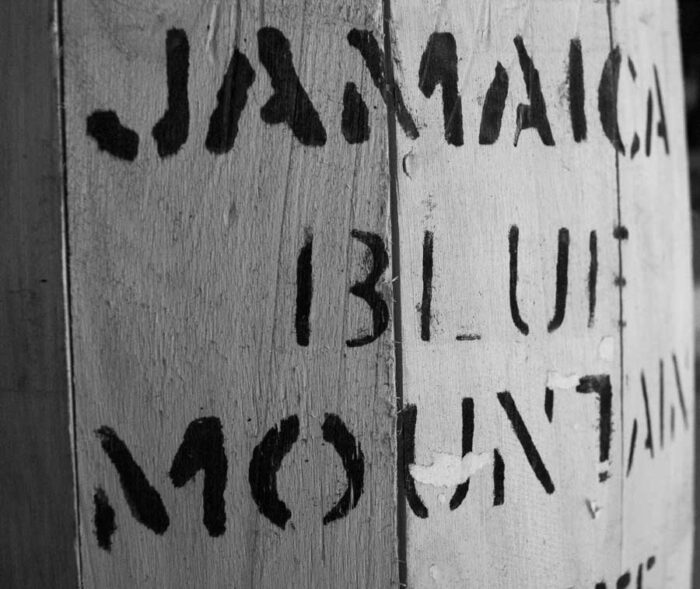 JAMAICA
BLUE
MOUNTAIN